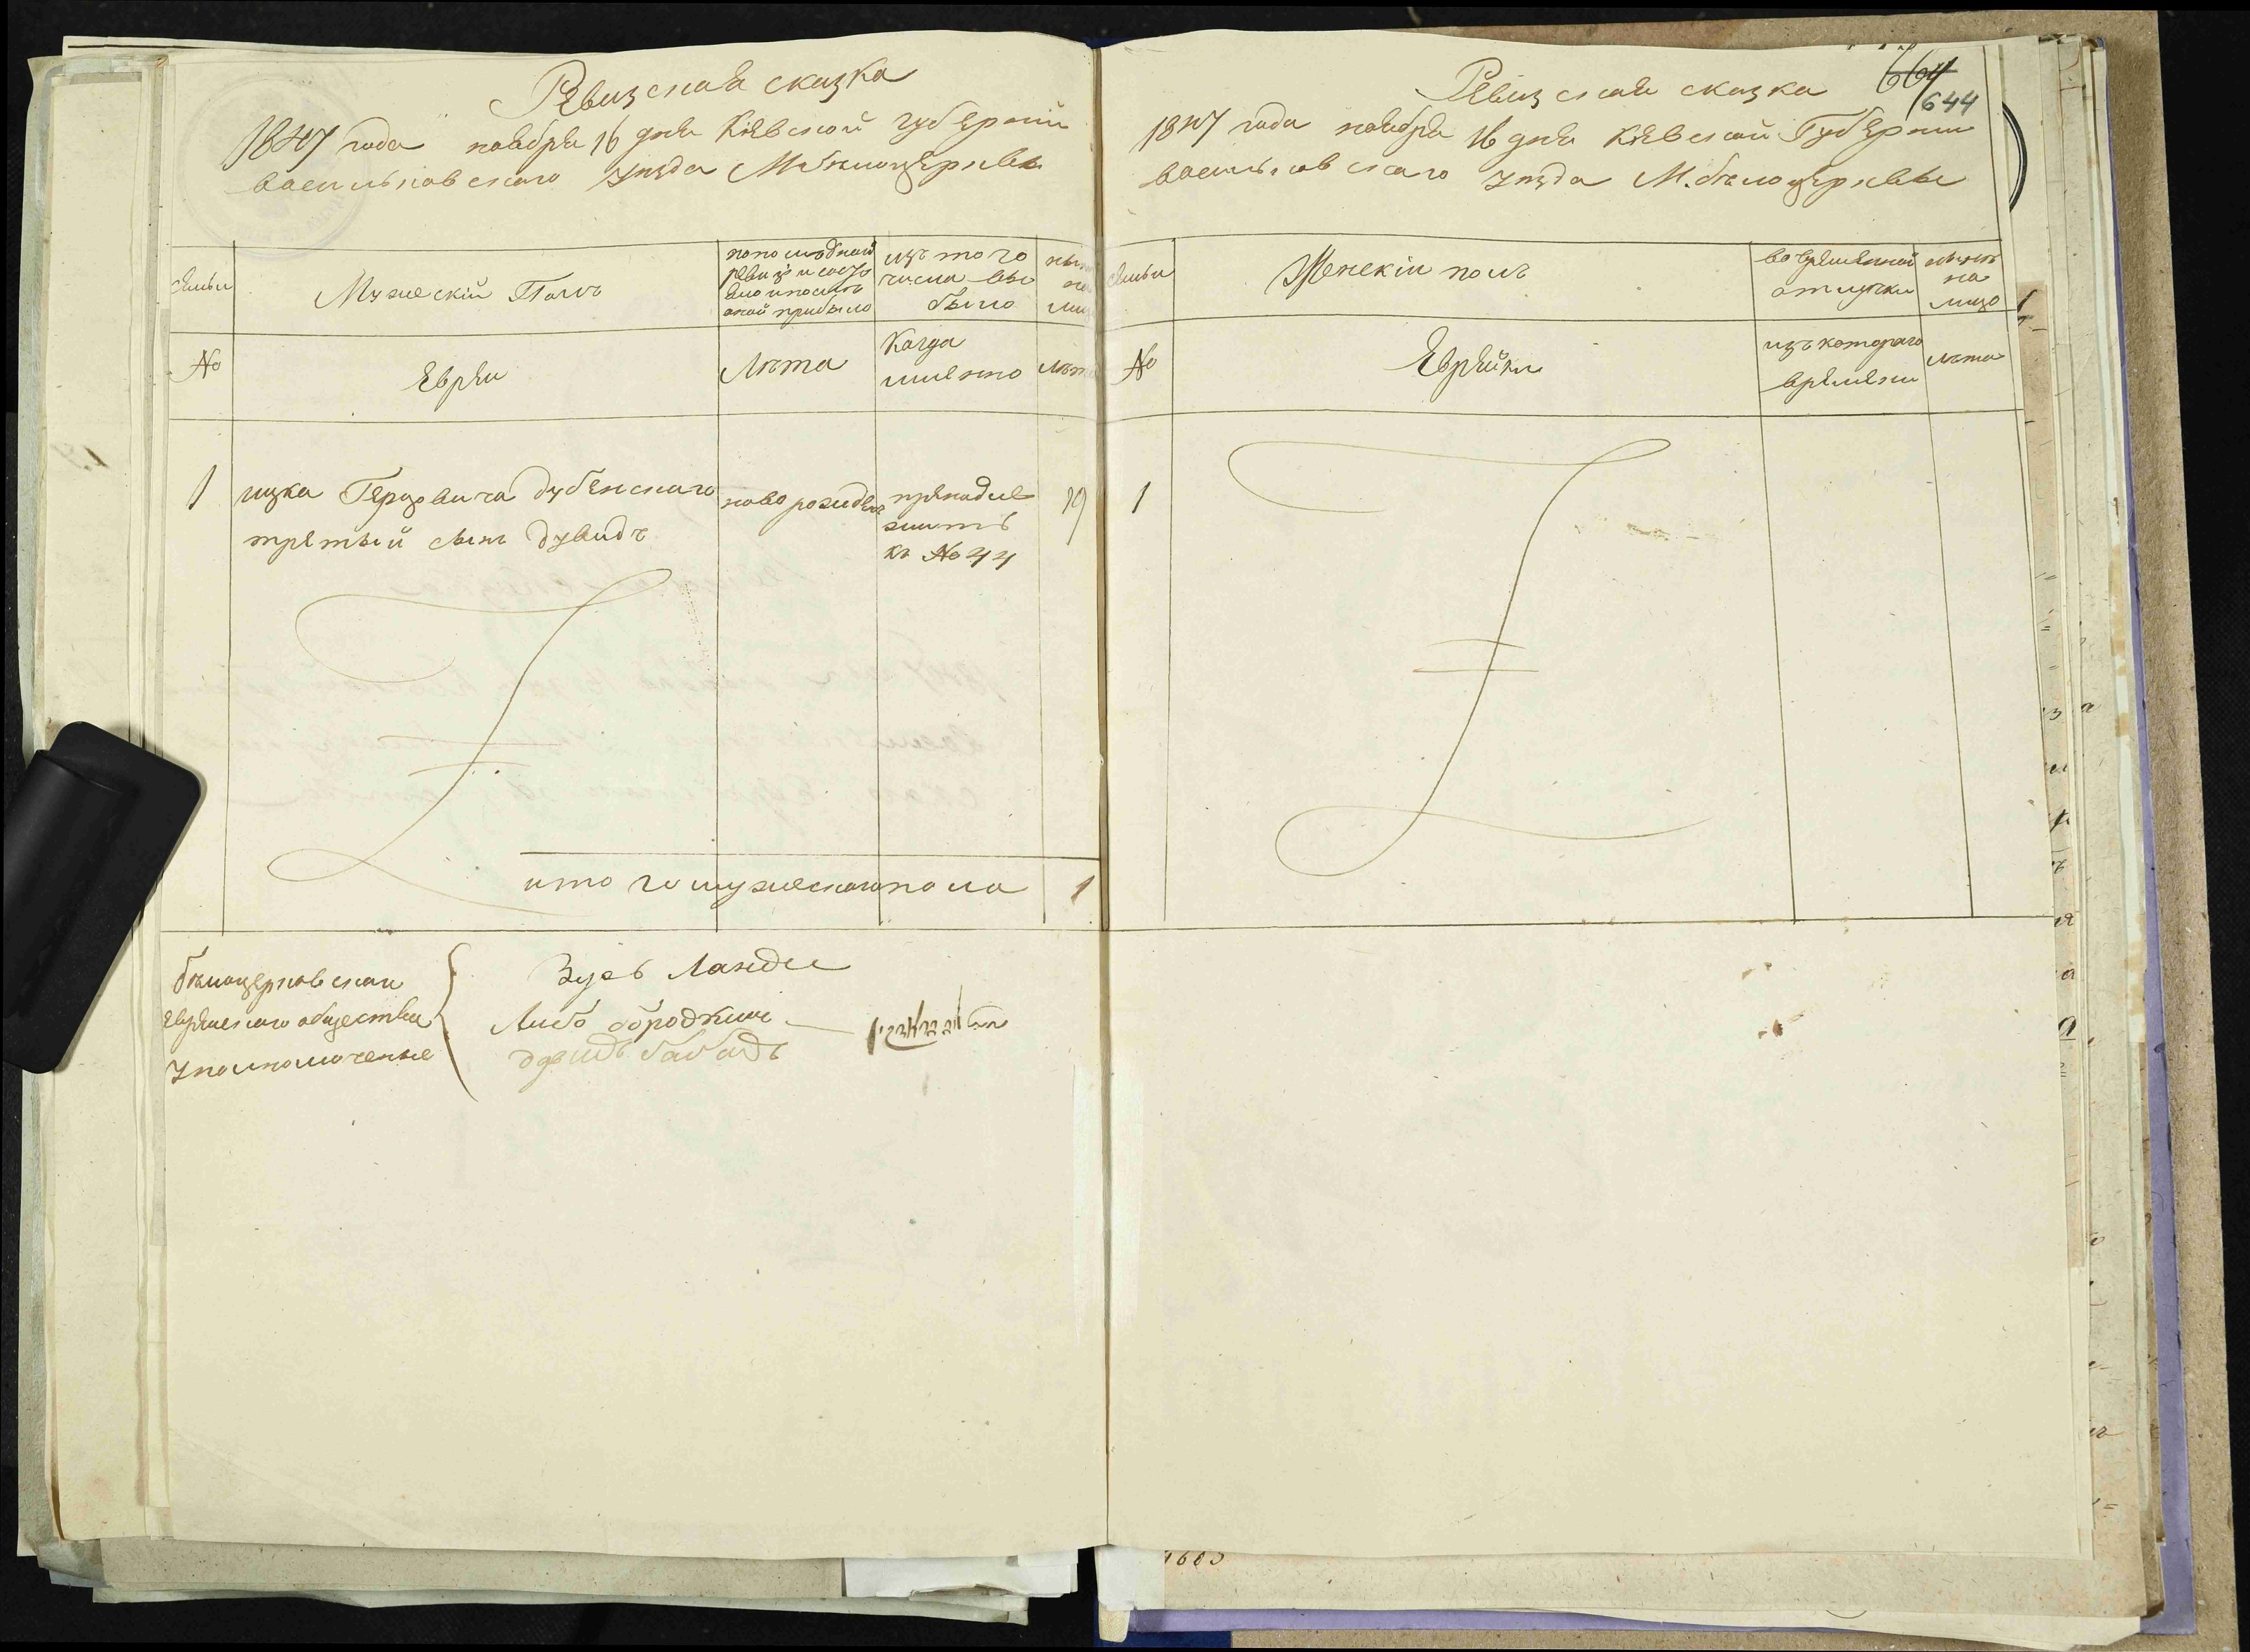 Ревизская сказка
1847 года ноября 16 дня Кіевской губерніи
васильковскаго уезда М белоцерквы
семьи
Мужескій Полъ
по последней
ревизіи состо
яло и после
оной прибыло
изъ того
числа вы
было
№
Евреи
Лета
Когда
именно
Лета
1
ицка Герцовича дубенскаго
третьий сынъ дувидъ
новорожденъ
принадле
житъ
къ № 44
19
итого мужескаго пола
1
белоцерковскаи
еврейскаго общества
уполномоченые
Зусь Ландa
Либо бродский
Ревизская сказка
664
644
1847 года ноября 16 дня Кіевской Губерніи
васильковскаго уезда М. белоцерквы
семьи
Женскій полъ
во временной
отлучки
ныне
на
лицо
№
Еврейки
изъ котораго
времени
лета
1